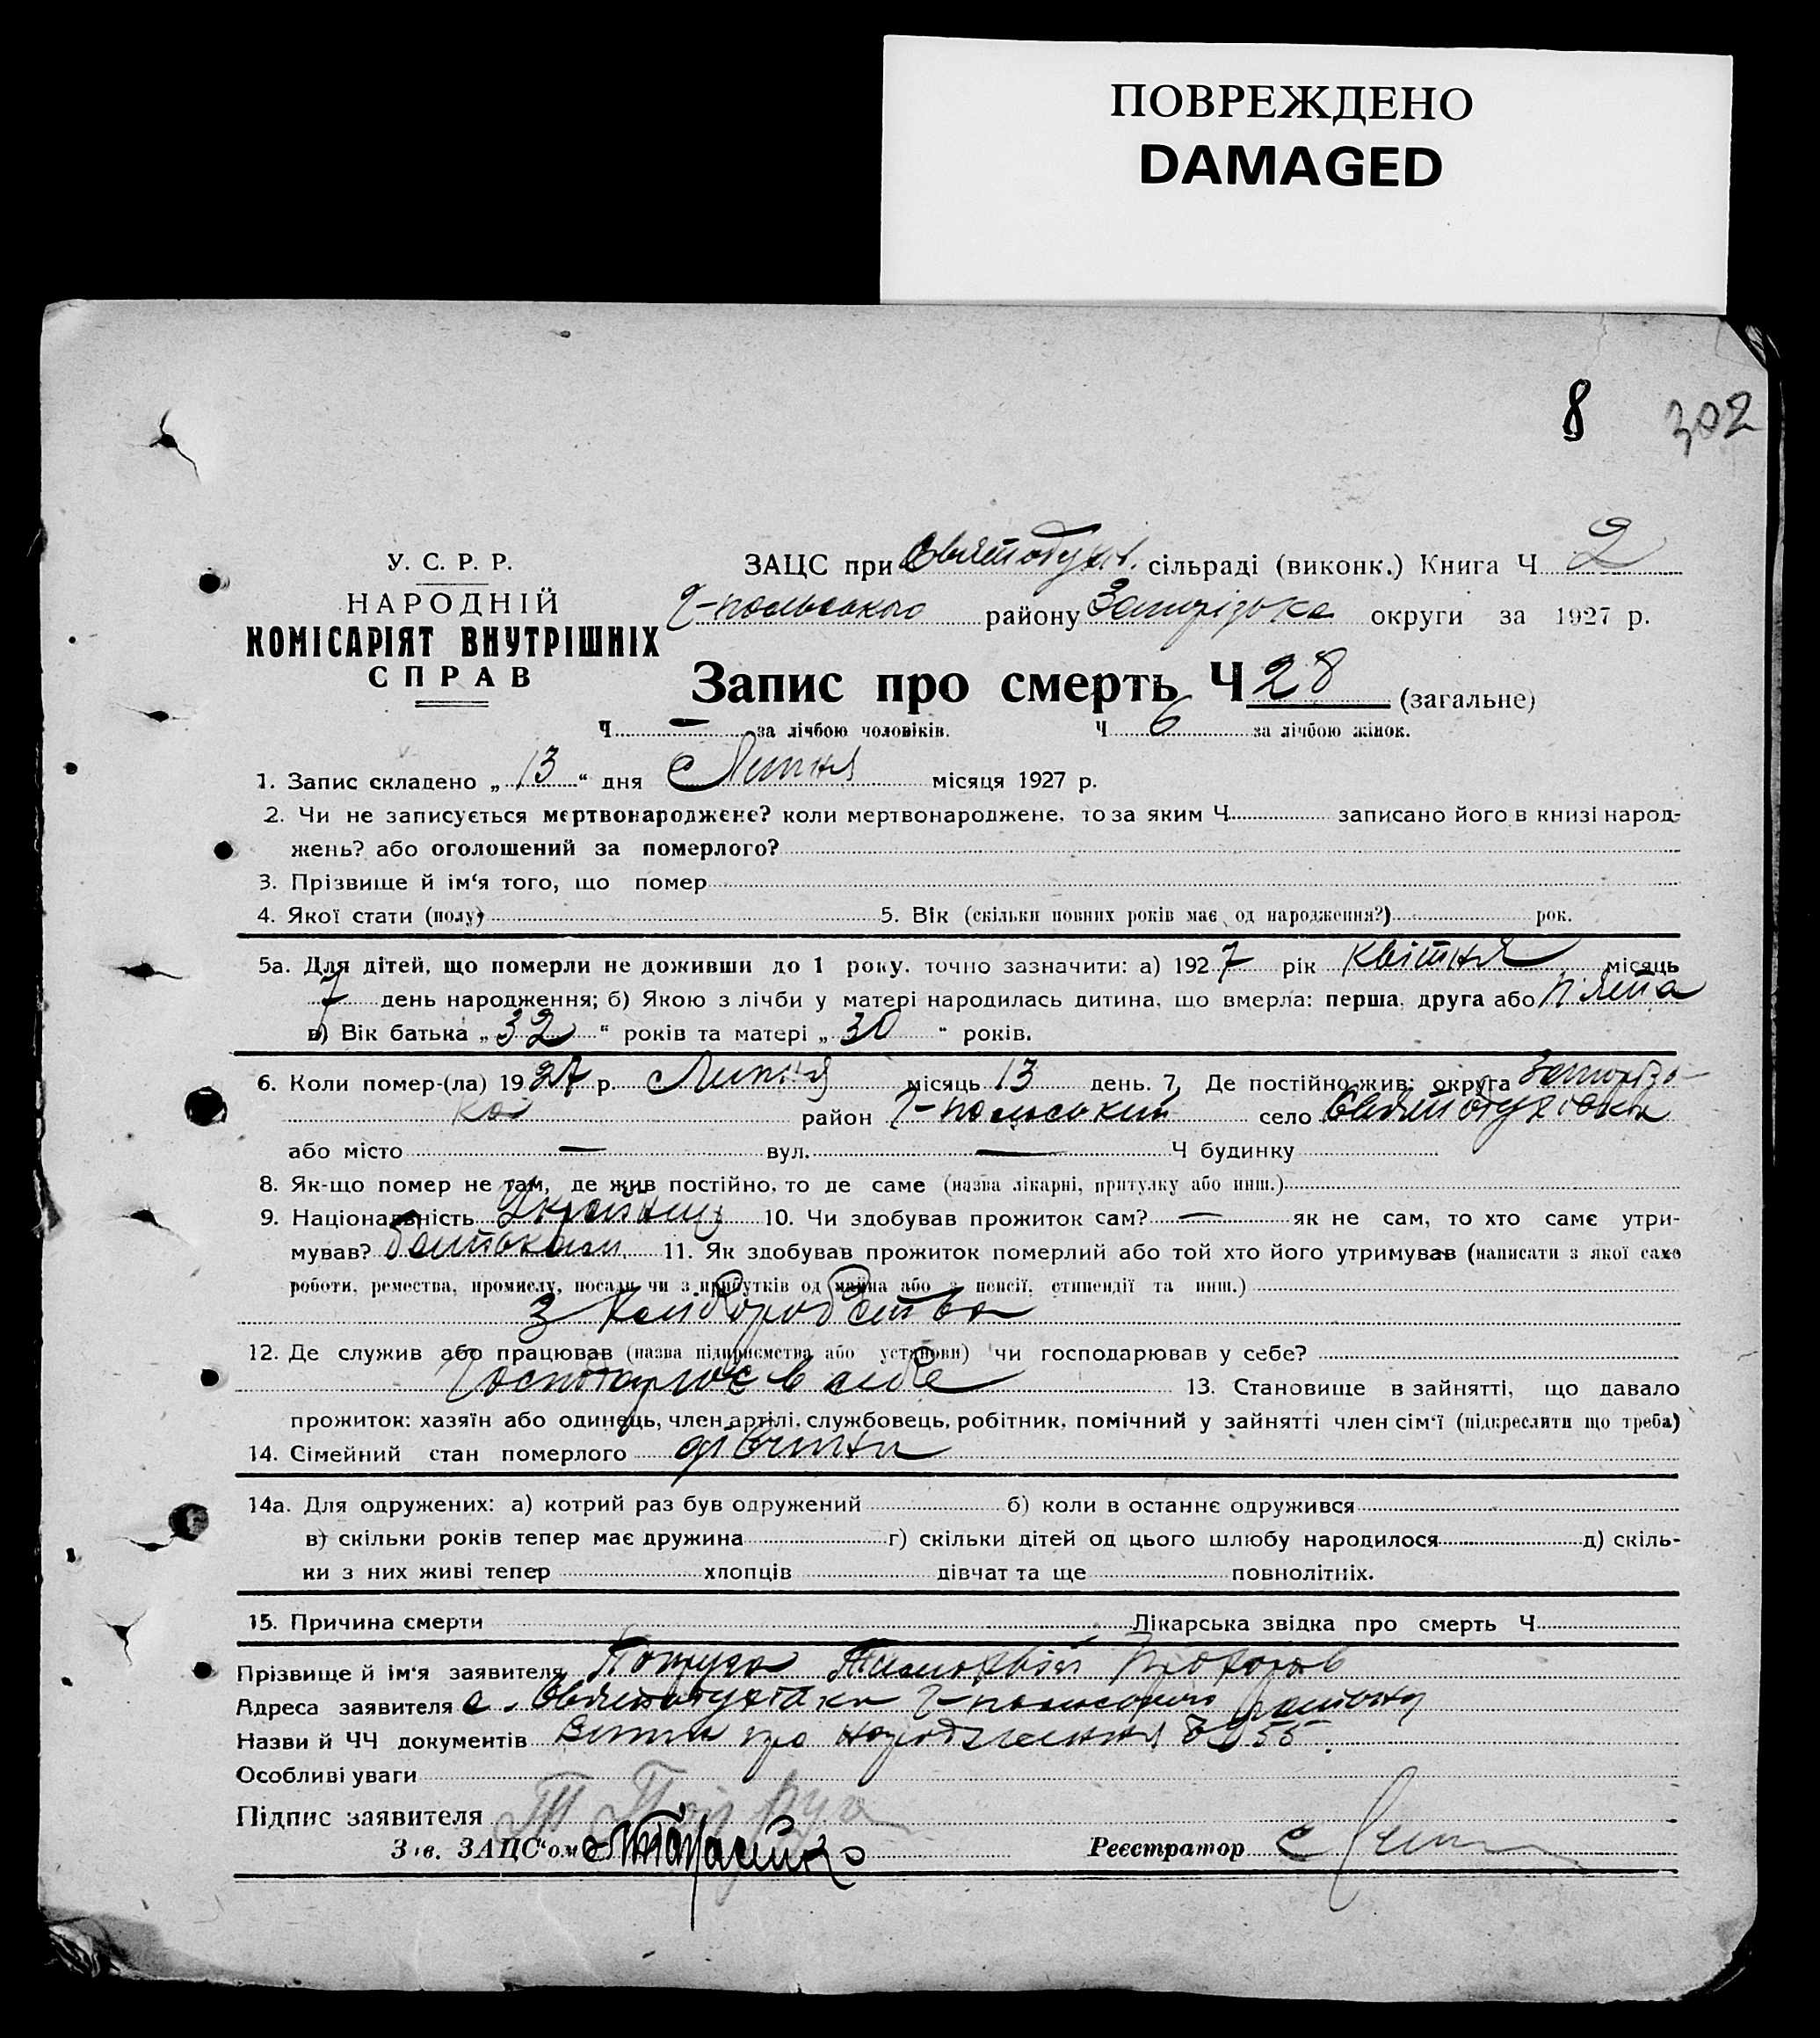 ПОВРЕЖДЕНО
DAMAGED
8 302
У. С. Р. Р.
НАРОДНІЙ
КОМІСАРІЯТ ВНУТРІШНІХ
СПРАВ
ЗАЦС при Святодух. сільраді (виконк.) Книга Ч 2
Г-польського району Запорізька округи за 1927 р.
Запис про смерть Ч 28 (загальне)
Ч — за лічбою чоловіків. Ч 6 за лічбою жінок.
1. Запис складено „ 13 “ дня Липня місяця 1927 р.
2. Чи не записується мертвонароджене? коли мертвонароджене, то за яким Ч записано його в книзі народ-
жень? або оголошений за померлого?
3. Прізвище й ім‘я того, що помер
4. Якої стати (полу) 5. Вік (скільки повних років має од народження?) рок.
5а. Для дітей, що померли не доживши до 1 року. точно зазначити: а) 192 7 рік квітня місяць
7 день народження; б) Якою з лічби у матері народилась дитина, що вмерла: перша, друга або п'ята
в) Вік батька „ 32 “ років та матері „ 30 “ років.
6. Коли помер-(ла) 19 27 р. Липня місяць 13 день. 7, Де постійно жив: округа Запорізь-
ка район Г-польський село Святодухівка
або місто — вул. — Ч будинку
8. Як-що помер не там, де жив постійно, то де саме (назва лікарні, притулку або инш.)
9. Національність Українец 10. Чи здобував прожиток сам? — як не сам, то хто саме утри-
мував? батьком 11. Як здобував прожиток померлий або той хто його утримував (написати з якої само
роботи, ремества, промислу, посади чи з прибутків од майна або з пенсії, стипендії та инш.)
з хлібороб'ства
12. Де служив або працював (назва підприємства або установи) чи господарював у себе?
Господарює в себе 13. Становище в зайнятті, що давало
прожиток: хазяїн або одинець, член артілі, службовець, робітник, помічний у зайнятті член сім‘ї (підкреслити що треба)
14. Сімейний стан померлого дівчина
14а. Для одружених: а) котрий раз був одружений б) коли в останнє одружився
в) скільки років тепер має дружина г) скільки дітей од цього шлюбу народилося д) скіль-
ки з них живі тепер хлопців дівчат та ще повнолітніх.
15. Причина смерти Лікарська звідка про смерть Ч
Прізвище й ім‘я заявителя Попруга Тимохвій Прохоров
Адреса заявителя с. Святодухівка Г-польського району
Назви й ЧЧ документів Витяг про народження 55
Особливі уваги
Підпис заявителя Т Попруга
Зав. ЗАЦС“ом
Реєстратор